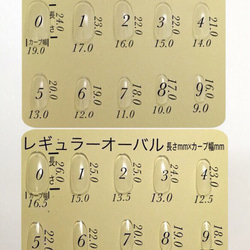 0 1 2 3 4
長さ 24.0 23.0 22.0 22.0 21.0
カーブ幅
19.0 17.0 16.0 15.0 14.0
5 6 7 8 9
20.0 19.0 18.0 17.0 16.0
13.0 12.0 11.0 10.0 9.0
レギュラーオーバル 長さmm×カーブ幅mm
0 1 2 3 4
長さ 26.0 25.0 25.0 24.0 23.0
カーブ幅
16.5 15.0 13.5 13.0 12.5
5 6 7 8 9
22.0 22.0 19.0 18.0